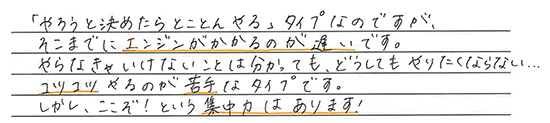 「やろうと決めたらとことんやる」タイプなのですが、
そこまでにエンジンがかかるのが遅いです。
やらなきゃいけないことは分かってても、どうしてもやりたくならない…
コツコツやるのが苦手なタイプです。
しかし、ここぞ!という集中力はあります!